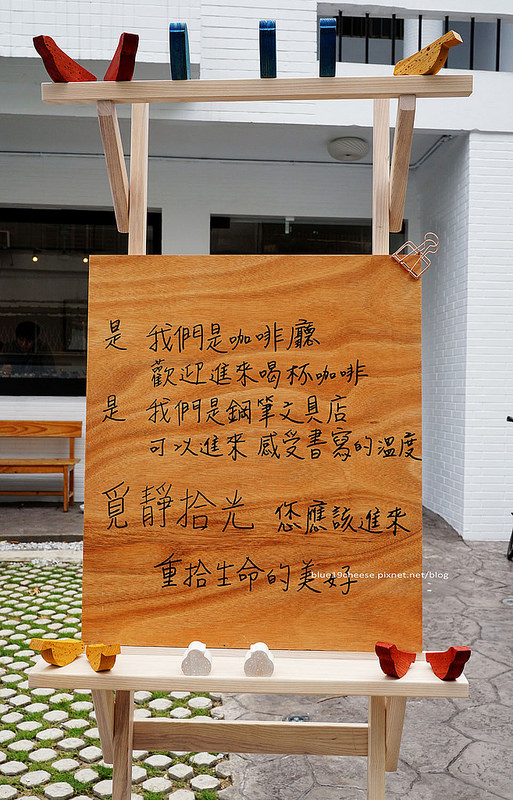 是 我們是咖啡廳
歡迎進來喝杯咖啡
是 我們是鋼筆文具店
可以進來 感受書寫的溫度
覓靜拾光 您應該進來
重拾生命的美好
blue39cheese.pixnet.net/blog